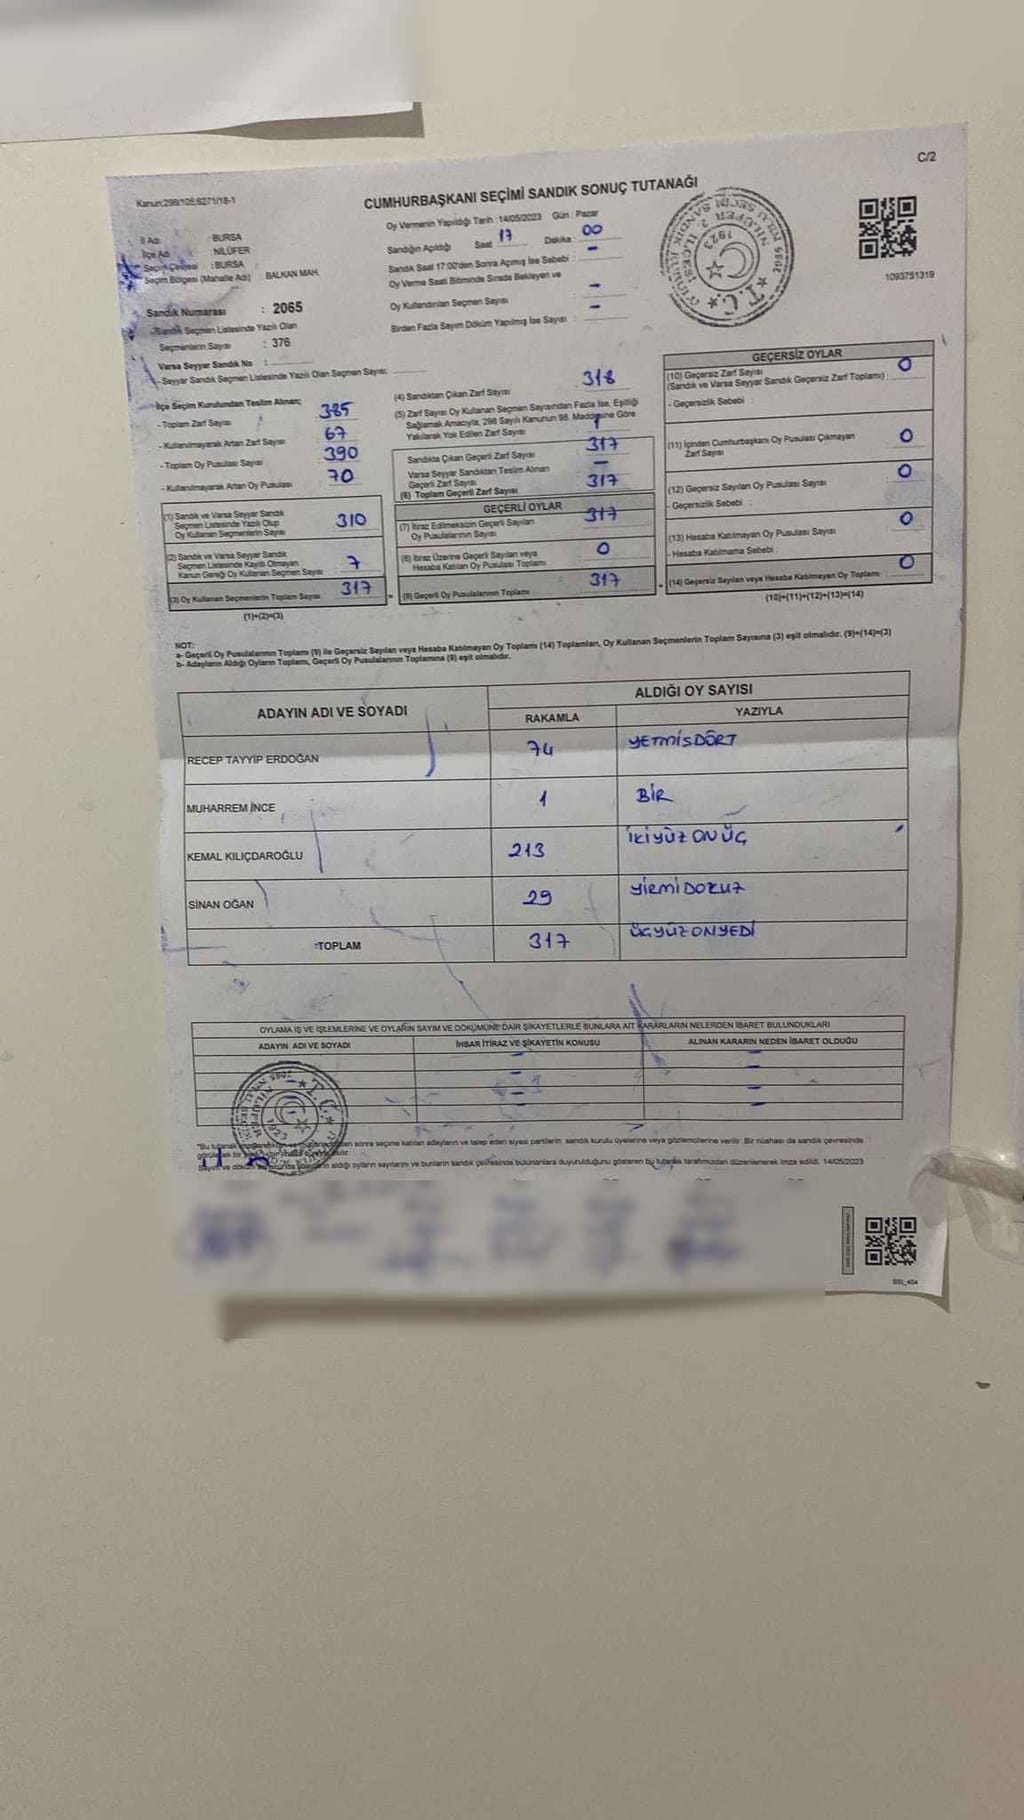 C/2
Kanun:298/105,6271/18-1
CUMHURBAŞKANI SEÇİMİ SANDIK SONUÇ TUTANAĞI
Oy Vermenin Yapıldığı Tarih :14/05/2023 Gün : Pazar
İl Adı : BURSA
İlçe Adı : NİLÜFER
Seçim Çevresi : BURSA
Seçim Bölgesi (Mahalle Adı) BALKAN MAH.
Sandık Numarası : 2065
-Sandık Seçmen Listesinde Yazılı Olan
Seçmenlerin Sayısı : 376
Varsa Seyyar Sandık No :
- Seyyar Sandık Seçmen Listesinde Yazılı Olan Seçmen Sayısı:
Sandığın Açıldığı Saat 17 Dakika : 00
Sandık Saat 17:00'den Sonra Açımış İse Sebebi : -
Oy Verme Saati Bitiminde Sırada Bekleyen ve
Oy Kullandırılan Seçmen Sayısı : -
Birden Fazla Sayım Döküm Yapılmış İse Sayısı : -
1093751319
İlçe Seçim Kurulundan Teslim Alınan;
- Toplam Zarf Sayısı : 385
- Kullanılmayarak Artan Zarf Sayısı : 67
- Toplam Oy Pusulası Sayısı : 390
- Kullanılmayarak Artan Oy Pusulası : 70
(1) Sandık ve Varsa Seyyar Sandık
Seçmen Listesinde Yazılı Olup
Oy Kullanan Seçmenlerin Sayısı : 310
(2) Sandık ve Varsa Seyyar Sandık
Seçmen Listesinde Kayıtlı Olmayan
Kanun Gereği Oy Kullanan Seçmen Sayısı : 7
(3) Oy Kullanan Seçmenlerin Toplam Sayısı : 317
(1)+(2)=(3)
(4) Sandıktan Çıkan Zarf Sayısı : 318
(5) Zarf Sayısı Oy Kullanan Seçmen Sayısından Fazla İse, Eşitliği
Sağlamak Amacıyla, 298 Sayılı Kanunun 98. Maddesine Göre
Yakılarak Yok Edilen Zarf Sayısı : 1
Sandıkta Çıkan Geçerli Zarf Sayısı : 317
Varsa Seyyar Sandıktan Teslim Alınan
Geçerli Zarf Sayısı : -
(6) Toplam Geçerli Zarf Sayısı : 317
GEÇERLİ OYLAR
(7) İtiraz Edilmeksizin Geçerli Sayılan
Oy Pusulalarının Sayısı : 317
(8) İtiraz Üzerine Geçerli Sayılan veya
Hesaba Katılan Oy Pusulası Toplamı : 0
(9) Geçerli Oy Pusulalarının Toplamı : 317
GEÇERSİZ OYLAR
(10) Geçersiz Zarf Sayısı
(Sandık ve Varsa Seyyar Sandık Geçersiz Zarf Toplamı) : 0
- Geçersizlik Sebebi :
(11) İçinden Cumhurbaşkanı Oy Pusulası Çıkmayan
Zarf Sayısı : 0
(12) Geçersiz Sayılan Oy Pusulası Sayısı : 0
- Geçersizlik Sebebi :
(13) Hesaba Katılmayan Oy Pusulası Sayısı : 0
- Hesaba Katılmama Sebebi :
(14) Geçersiz Sayılan veya Hesaba Katılmayan Oy Toplamı : 0
(10)+(11)+(12)+(13)=(14)
NOT:
a- Geçerli Oy Pusulalarının Toplamı (9) ile Geçersiz Sayılan veya Hesaba Katılmayan Oy Toplamı (14) Toplamları, Oy Kullanan Seçmenlerin Toplam Sayısına (3) eşit olmalıdır. (9)+(14)=(3)
b- Adayların Aldığı Oyların Toplamı, Geçerli Oy Pusulalarının Toplamına (9) eşit olmalıdır.
ADAYIN ADI VE SOYADI ALDIĞI OY SAYISI
RAKAMLA YAZIYLA
RECEP TAYYİP ERDOĞAN 74 YETMİSDÖRT
MUHARREM İNCE 1 BİR
KEMAL KILIÇDAROĞLU 213 İKİYÜZ ONÜÇ
SİNAN OĞAN 29 YİRMİDOKUZ
TOPLAM 317 ÜÇYÜZONYEDİ
OYLAMA İŞ VE İŞLEMLERİNE VE OYLARIN SAYIM VE DÖKÜMÜNE DAİR ŞİKAYETLERLE BUNLARA AİT KARARLARIN NELERDEN İBARET BULUNDUKLARI
ADAYIN ADI VE SOYADI İHBAR İTİRAZ VE ŞİKAYETİN KONUSU ALINAN KARARIN NEDEN İBARET OLDUĞU
sonra seçime katılan adayların ve talep eden siyasi partilerin sandık kurulu üyelerine veya gözlemcilerine verilir. Bir nüshası da sandık çevresinde
aldığı oyların sayılarını ve bunların sandık çevresinde bulunanlara duyurulduğunu gösteren bu tutanak tarafımızdan düzenlenerek imza edildi. 14/05/2023